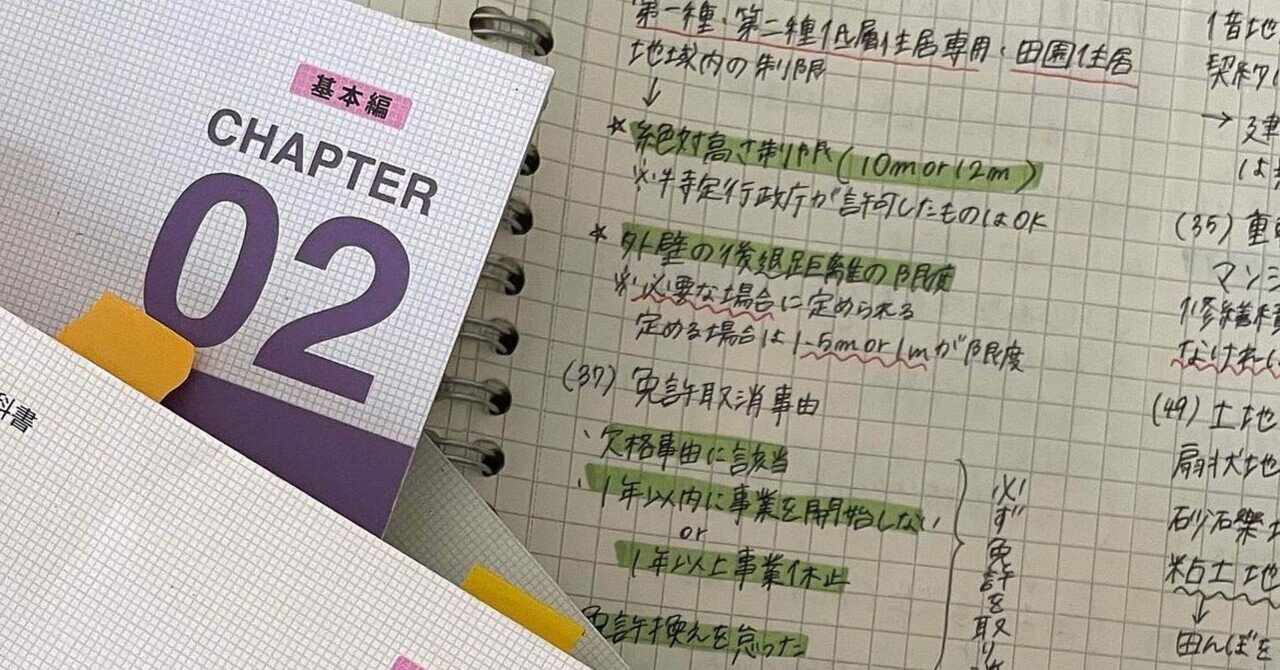 基本編
CHAPTER
02
科書
第一種・第二種低層住居専用・田園住居
地域内の制限
↓
☆絶対高さ制限(10m or 12m)
※特定行政庁が許可したものはOK
☆外壁の後退距離の限度
※必要な場合に定められる
定める場合は1.5m or 1mが限度
(37) 免許取消事由
・欠格事由に該当
・1年以内に事業を開始しない
or
1年以上事業休止
免許換えを怠った
必ず免許を取り
借地
契約
→
は
(35) 重
マンシ
修繕積
なければ
(49) 土地
扇状地
砂礫
粘土地
↓
田んぼを